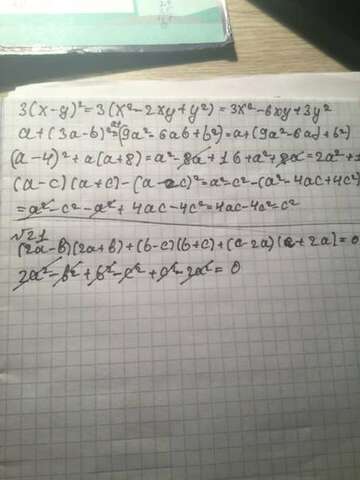 3(x-y)²=3(x²-2xy+y²)=3x²-6xy+3y²
a+(3a-b)²=(9a²-6ab+b²)=a+(9a²-6a)+b²)
(a-4)²+a(a+8)=a²-8a+16+a²+8a=2a²+1
(a-c)(a+c)-(a-2c)²=a²-c²-(a²-4ac+4c²)
=a²-c²-a²+4ac-4c²=4ac-4c²-c²
√21
(2a-b)(2a+b)+(b-c)(b+c)+(c-2a)(c+2a)=0
2a²-b²+b²-c²+c²-2a²=0